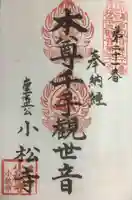 第二十一番
奉納経
本尊千手観世音
小松寺